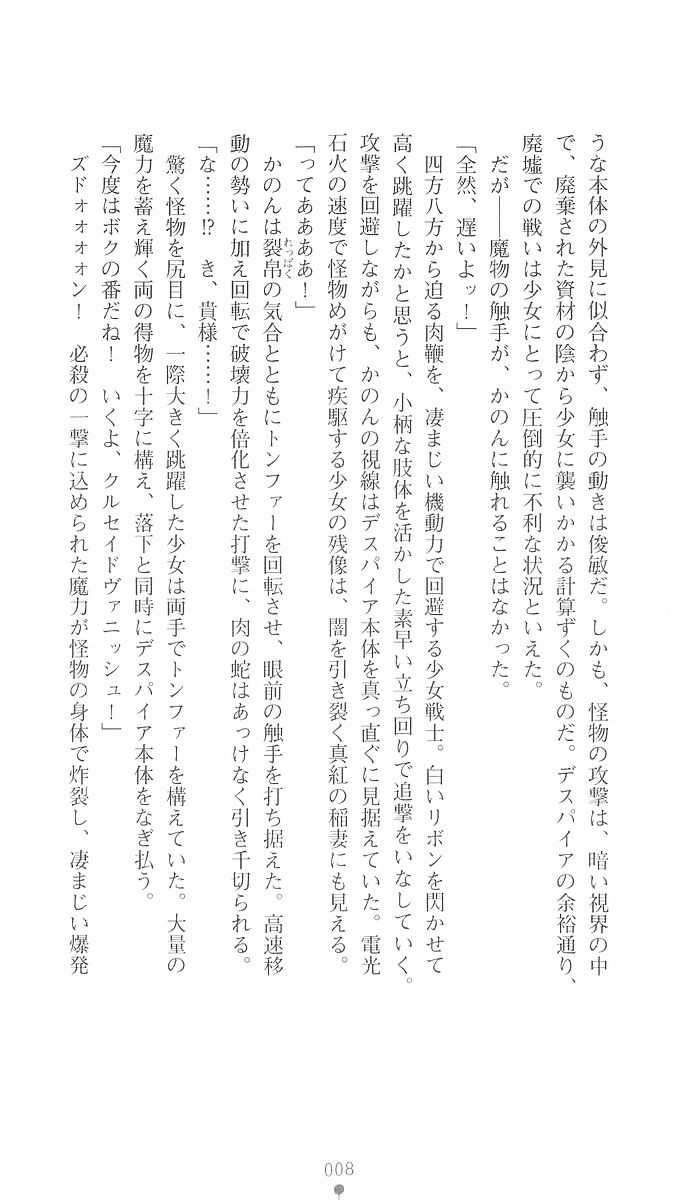 うな本体の外見に似合わず、触手の動きは俊敏だ。しかも、怪物の攻撃は、暗い視界の中
で、廃棄された資材の陰から少女に襲いかかる計算ずくのものだ。デスパイアの余裕通り、
廃墟での戦いは少女にとって圧倒的に不利な状況といえた。
　だが――魔物の触手が、かのんに触れることはなかった。
「全然、遅いよッ！」
　四方八方から迫る肉鞭を、凄まじい機動力で回避する少女戦士。白いリボンを閃かせて
高く跳躍したかと思うと、小柄な肢体を活かした素早い立ち回りで追撃をいなしていく。
攻撃を回避しながらも、かのんの視線はデスパイア本体を真っ直ぐに見据えていた。電光
石火の速度で怪物めがけて疾駆する少女の残像は、闇を引き裂く真紅の稲妻にも見える。
「ってああああ！」
　かのんは裂帛れっぱくの気合とともにトンファーを回転させ、眼前の触手を打ち据えた。高速移
動の勢いに加え回転で破壊力を倍化させた打撃に、肉の蛇はあっけなく引き千切られる。
「な……!?　き、貴様……！」
　驚く怪物を尻目に、一際大きく跳躍した少女は両手でトンファーを構えていた。大量の
魔力を蓄え輝く両の得物を十字に構え、落下と同時にデスパイア本体をなぎ払う。
「今度はボクの番だね！　いくよ、クルセイドヴァニッシュ！」
　ズドォォォォン！　必殺の一撃に込められた魔力が怪物の身体で炸裂し、凄まじい爆発
008